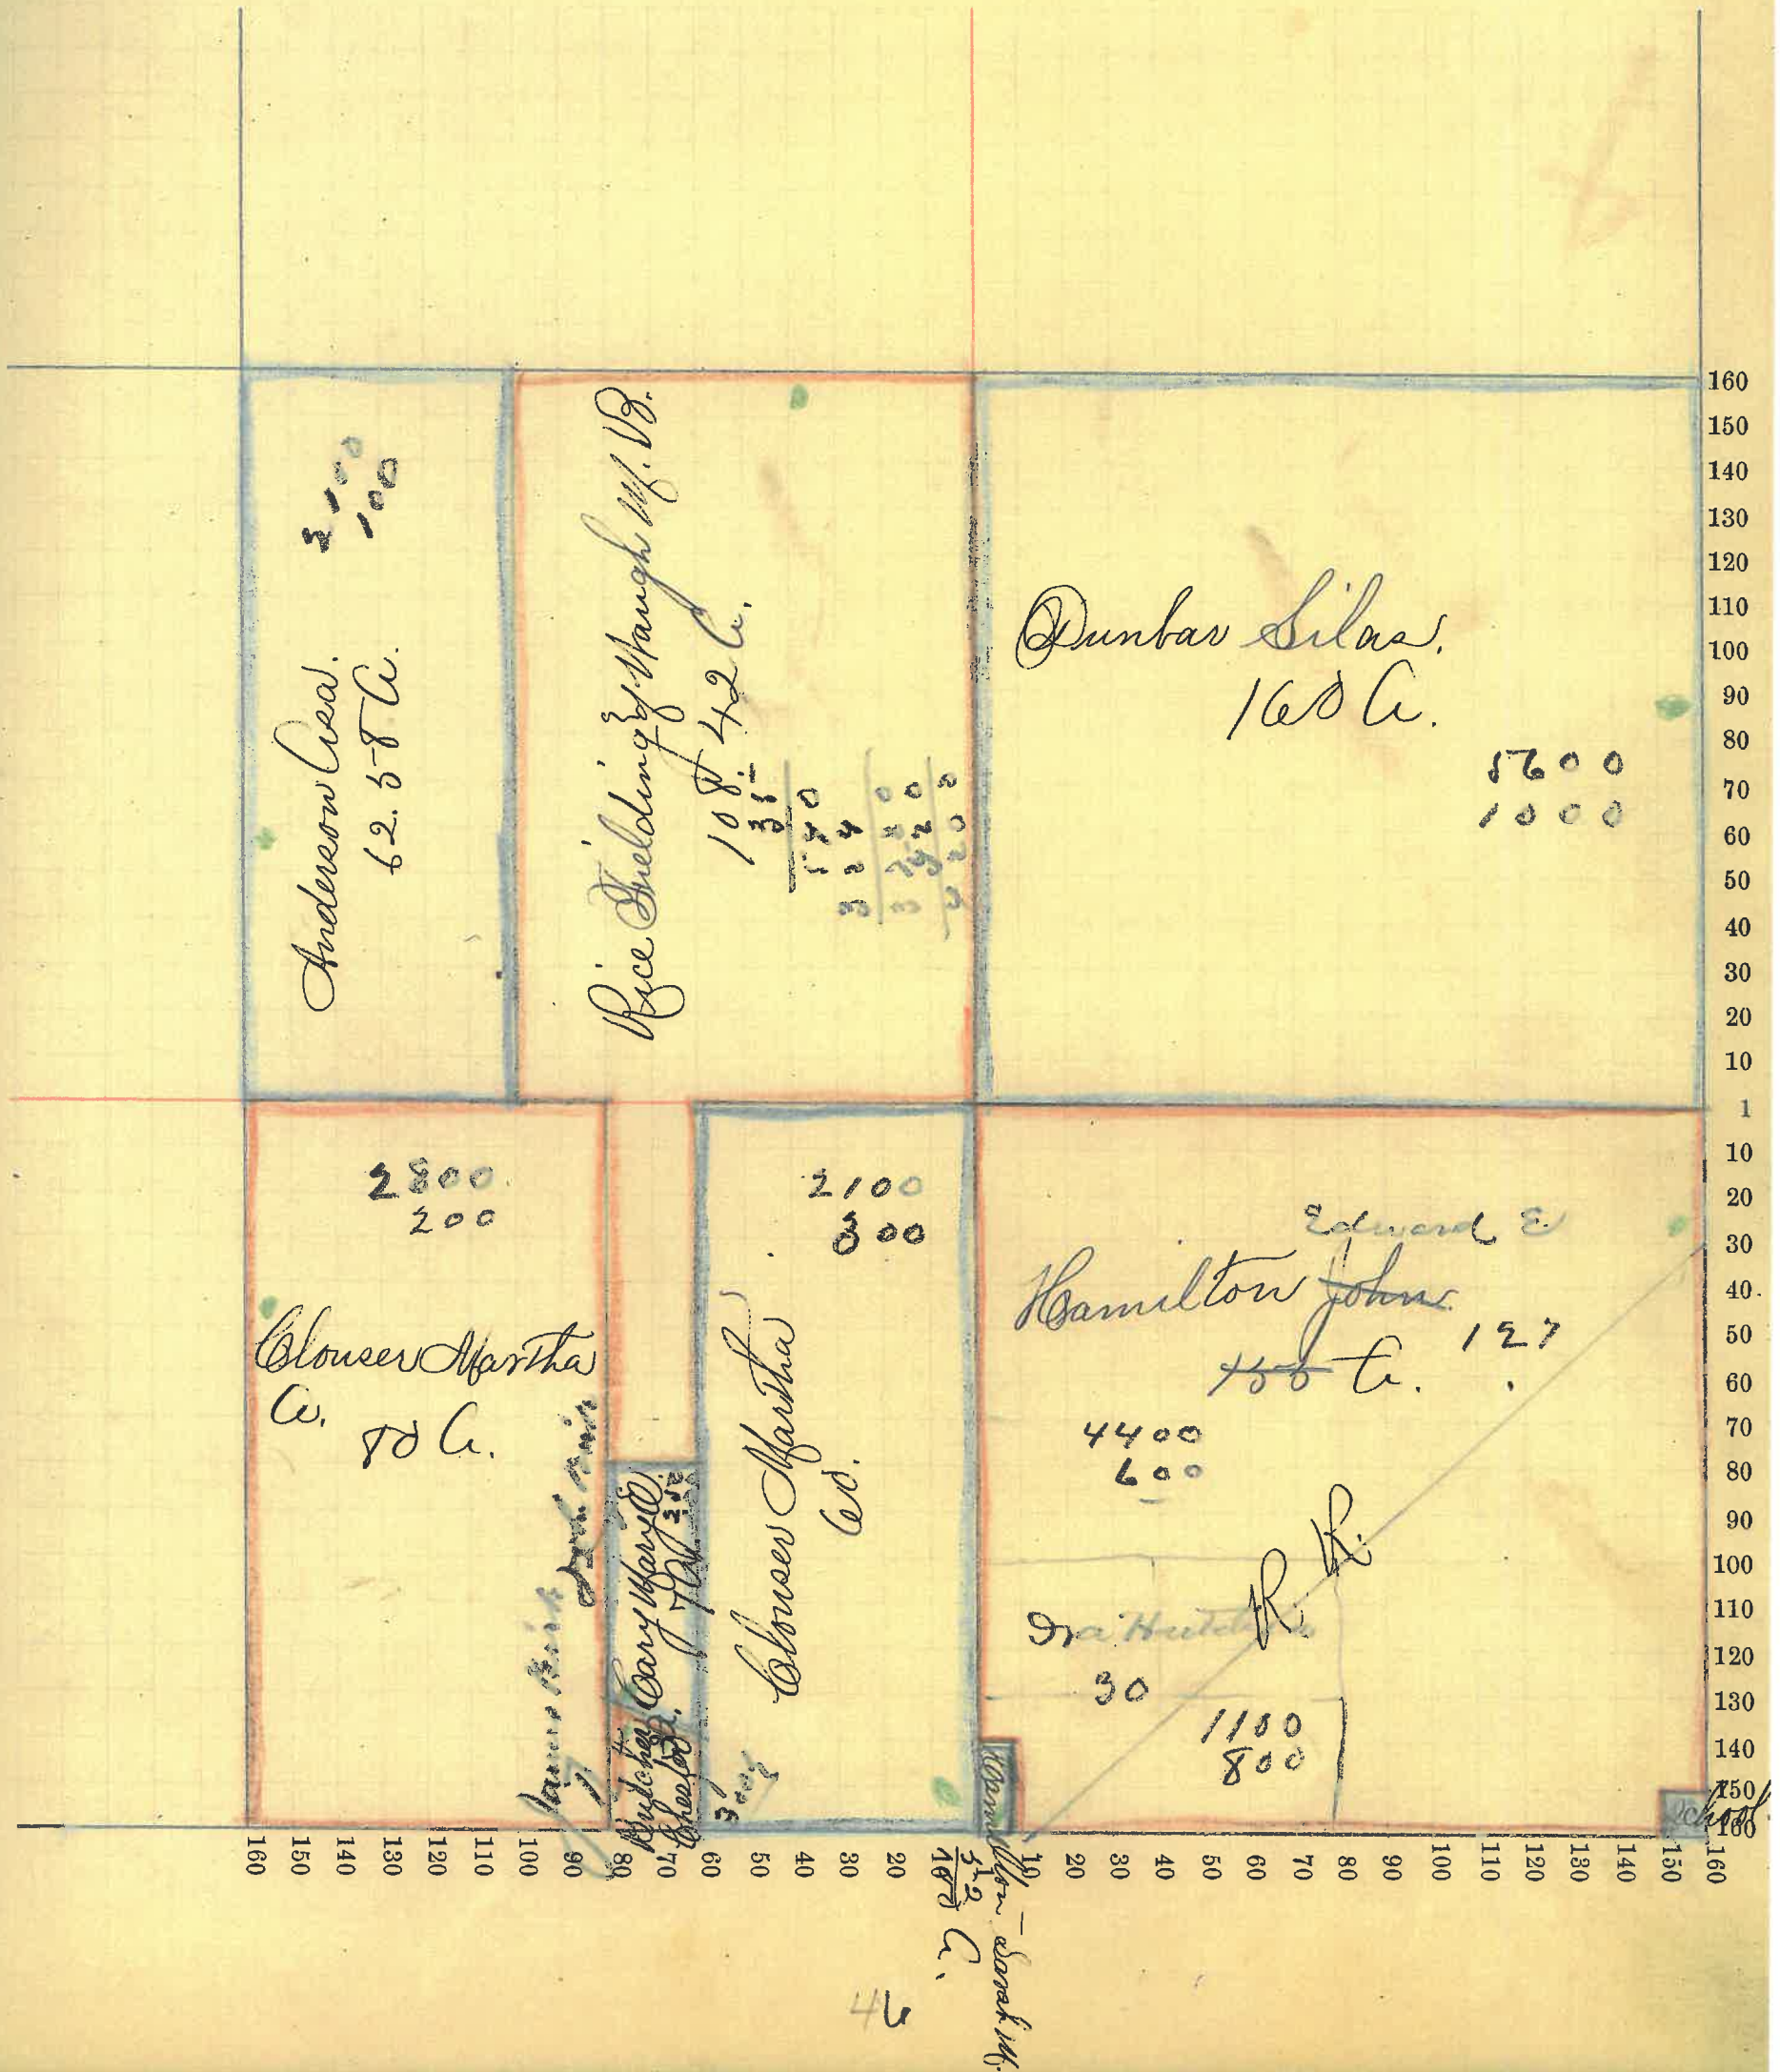 Anderson Asa.
62.58 A.
2100
100
Rice Fielding & Waugh W. B.
108.42 A.
35
Dunbar Silas.
160 A.
5600
1000
160
150
140
130
120
110
100
90
80
70
60
50
40
30
20
10
1
10
20
30
40
50
60
70
80
90
100
110
120
130
140
150
160
2800
200
Clouser Martha
A.
80 A.
James
Cary Mary E.
7 A.
Butcher
Chester A.
2100
300
Clouser Martha
60.
300
Edward E
Hamilton John
155 A. 127
4400
600
R. R.
Ira
30
1100
800
School
Hamilton Sarah M.
52
100 A.
160 150 140 130 120 110 100 90 80 70 60 50 40 30 20 10
10 20 30 40 50 60 70 80 90 100 110 120 130 140 150 160
46